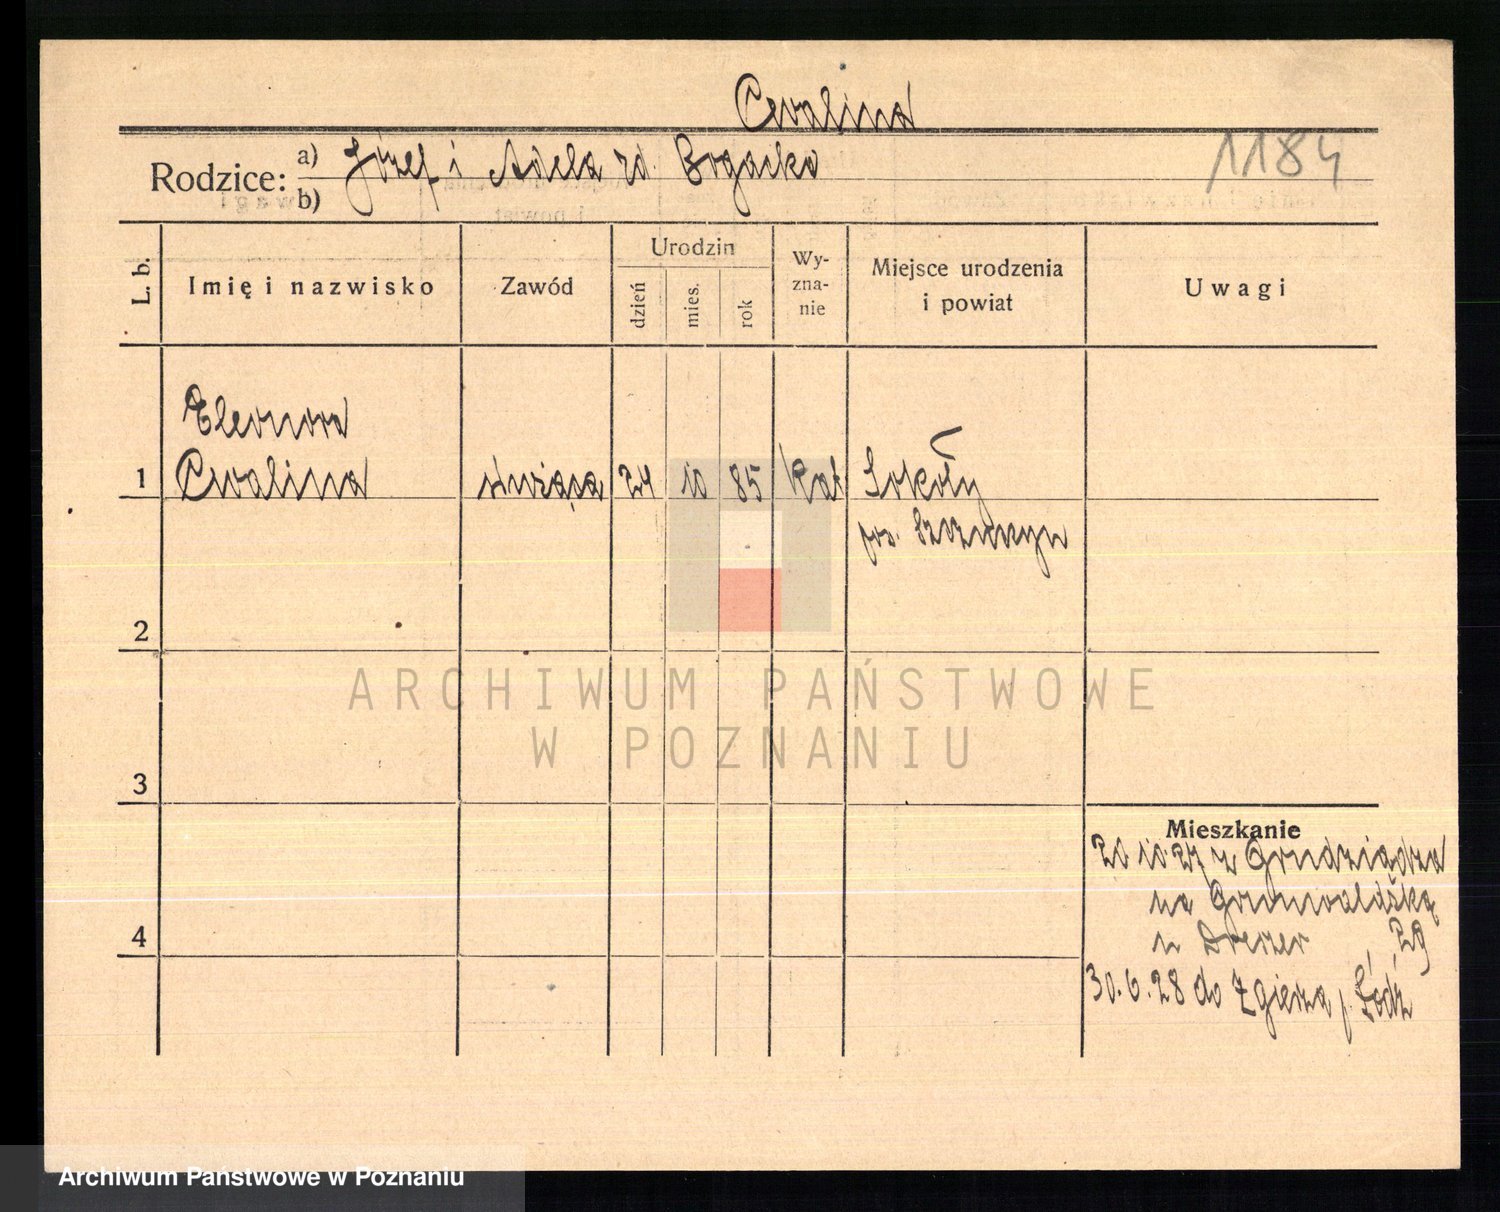 Cwalina
Rodzice: a) Józef i Adela zd. Bogacka
b)
1184
L. b.
Imię i nazwisko
Zawód
Urodzin
dzień
mies.
rok
Wy-
zna-
nie
Miejsce urodzenia
i powiat
Uwagi
Eleonora
1 Cwalina służąca 24 10 85 Kat Sokoły
pow. Szczuczyn
2
3
4
Mieszkanie
20 10 27 z Grudziądza
na Grunwaldzką
29
30.6.28 do Zgierza p. Łódź
ARCHIWUM PAŃSTWOWE
W POZNANIU
Archiwum Państwowe w Poznaniu